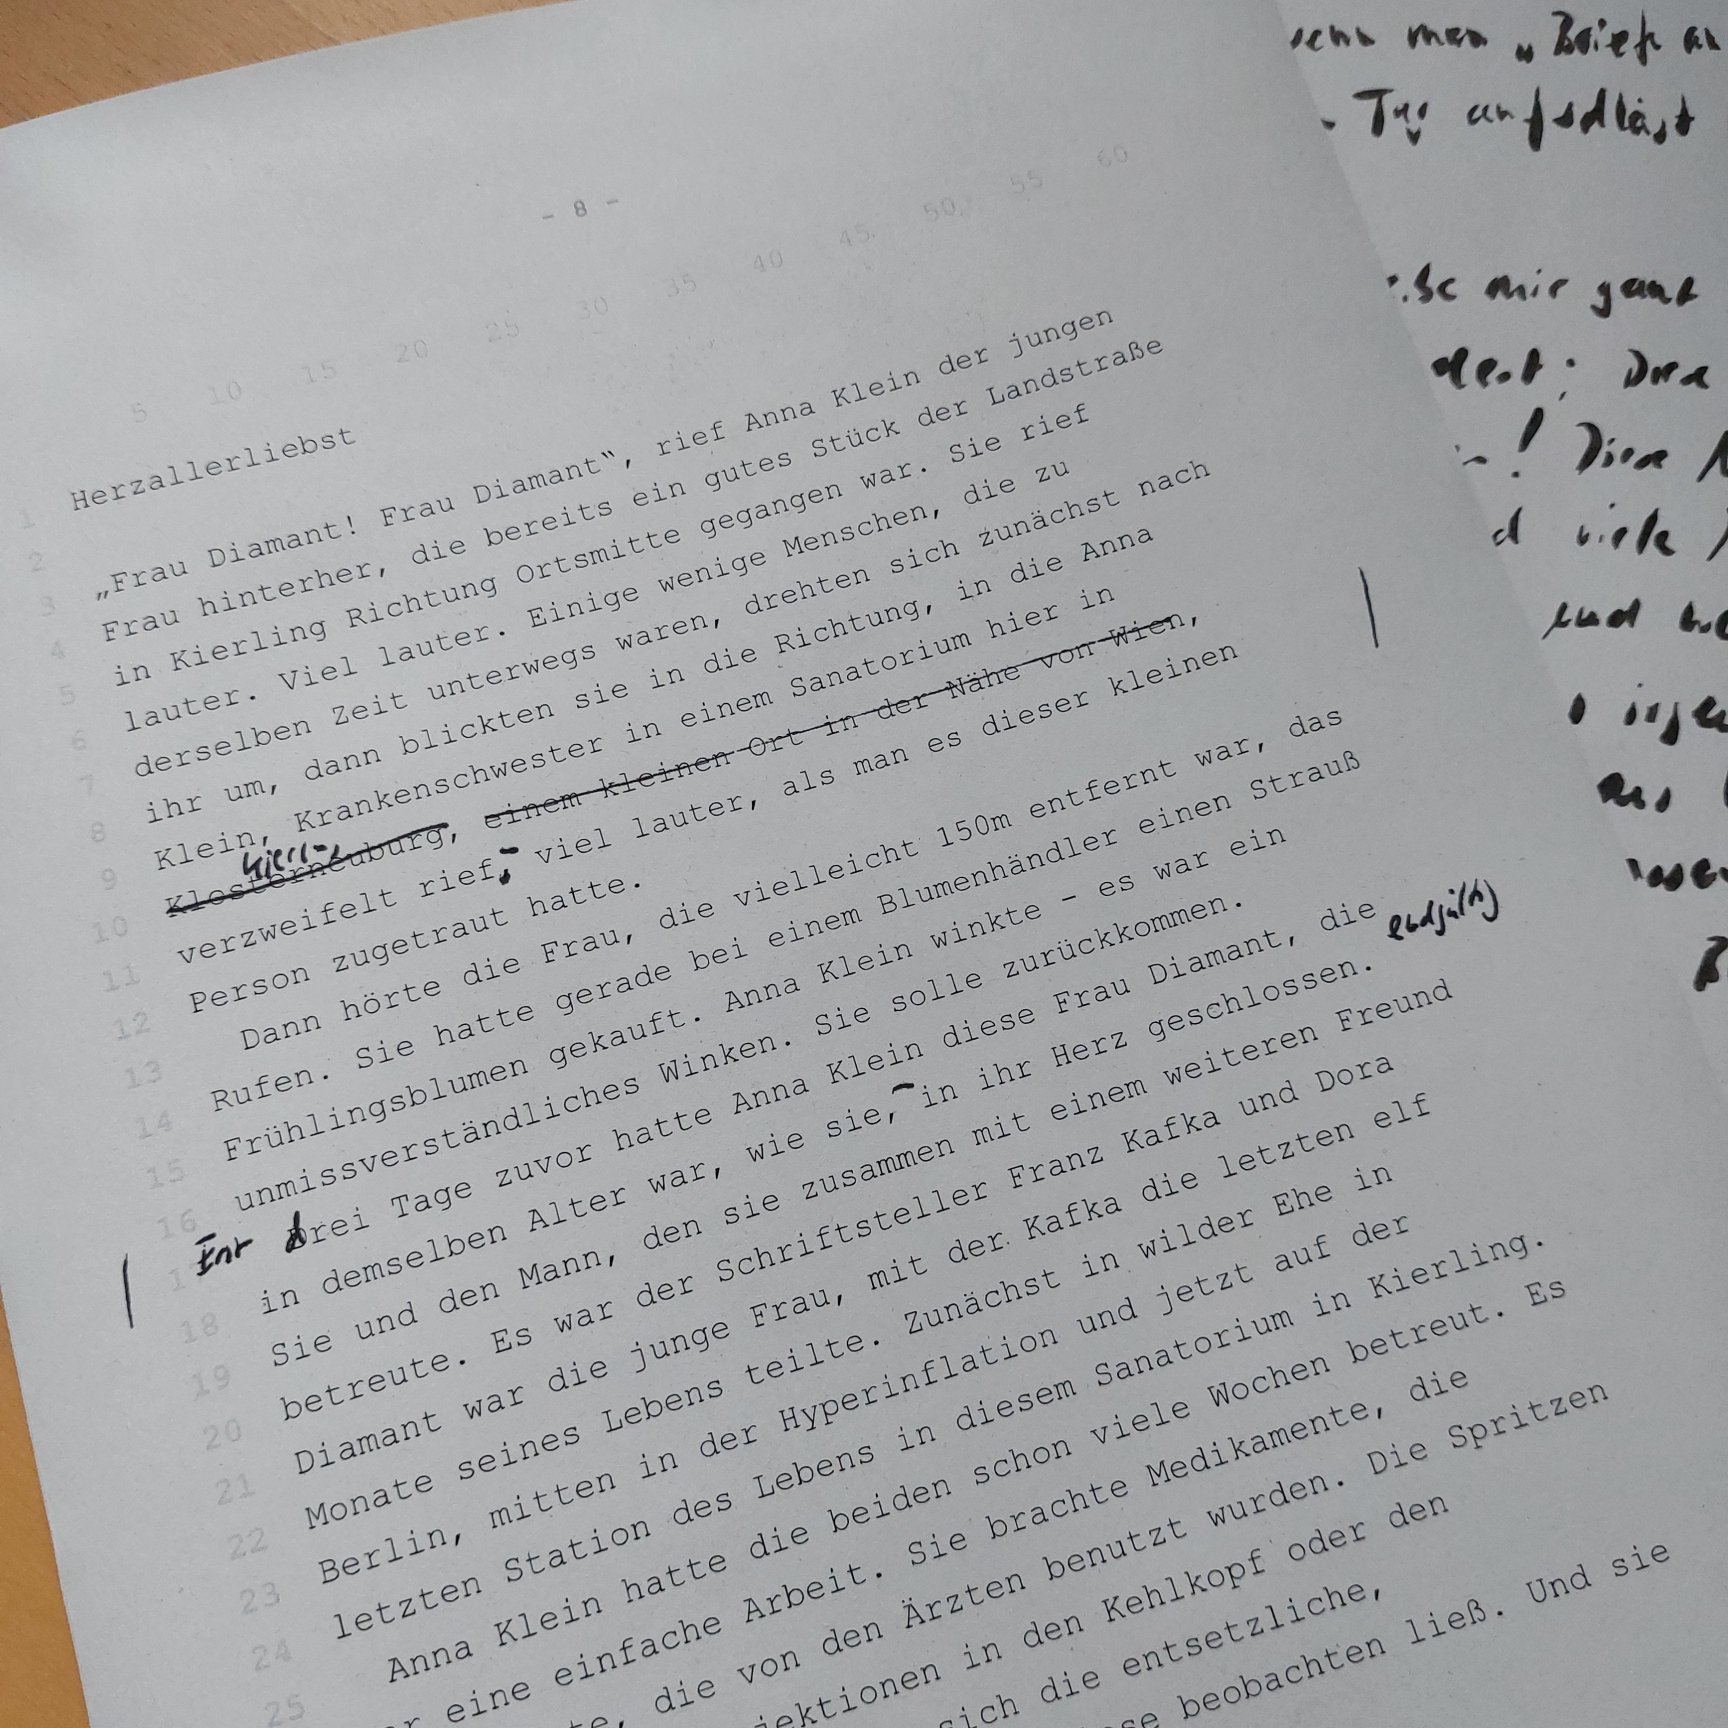 - 8 -
5 10 15 20 25 30 35 40 45 50 55 60
1 Herzallerliebst
2
3 „Frau Diamant! Frau Diamant“, rief Anna Klein der jungen
4 Frau hinterher, die bereits ein gutes Stück der Landstraße
5 in Kierling Richtung Ortsmitte gegangen war. Sie rief
6 lauter. Viel lauter. Einige wenige Menschen, die zu
7 derselben Zeit unterwegs waren, drehten sich zunächst nach
8 ihr um, dann blickten sie in die Richtung, in die Anna
9 Klein, Krankenschwester in einem Sanatorium hier in
Kierling
10 Klosterneuburg, einem kleinen Ort in der Nähe von Wien,
11 verzweifelt rief, viel lauter, als man es dieser kleinen
12 Person zugetraut hatte.
13 Dann hörte die Frau, die vielleicht 150m entfernt war, das
14 Rufen. Sie hatte gerade bei einem Blumenhändler einen Strauß
15 Frühlingsblumen gekauft. Anna Klein winkte - es war ein
16 unmissverständliches Winken. Sie solle zurückkommen.
Erst drei Tage zuvor hatte Anna Klein diese Frau Diamant, die
endgültig
18 in demselben Alter war, wie sie, in ihr Herz geschlossen.
19 Sie und den Mann, den sie zusammen mit einem weiteren Freund
20 betreute. Es war der Schriftsteller Franz Kafka und Dora
21 Diamant war die junge Frau, mit der Kafka die letzten elf
22 Monate seines Lebens teilte. Zunächst in wilder Ehe in
23 Berlin, mitten in der Hyperinflation und jetzt auf der
24 letzten Station des Lebens in diesem Sanatorium in Kierling.
25 Anna Klein hatte die beiden schon viele Wochen betreut. Es
eine einfache Arbeit. Sie brachte Medikamente, die
die von den Ärzten benutzt wurden. Die Spritzen
jektionen in den Kehlkopf oder den
sich die entsetzliche,
beobachten ließ. Und sie
wenn man „Briefe an
- Tag aufschlägt
mir ganz
Diese
! Diese
d viele
und